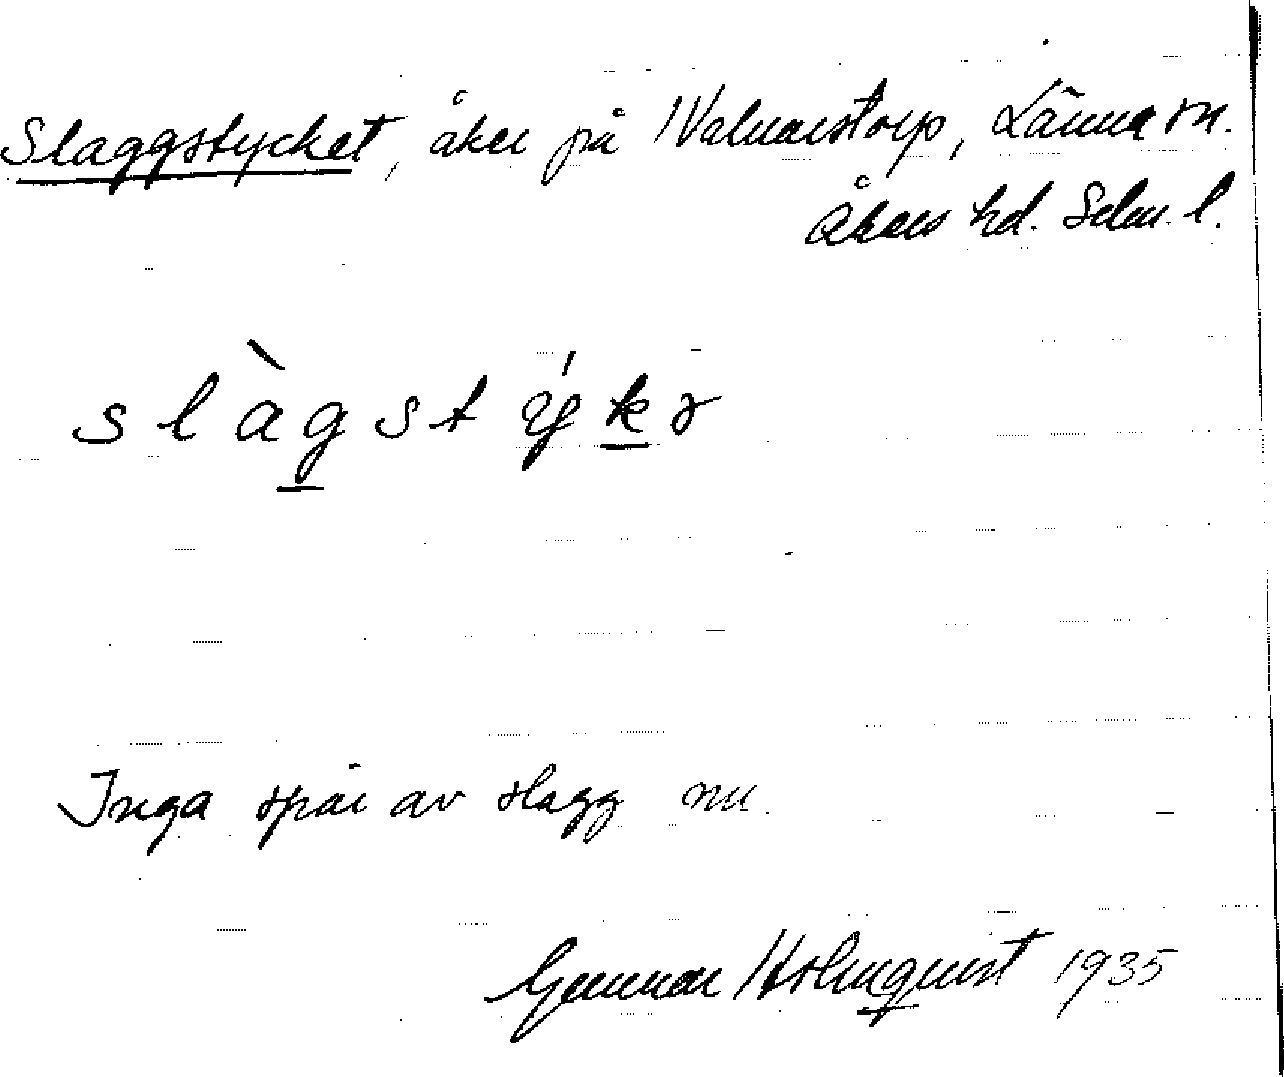 Slaggstycket, åker på Valnarstorp, Länna sn.
Åkers hd. Sdm. l.
slàgstýkə
Inga spår av slagg nu.
Gunnar Holmquist 1935